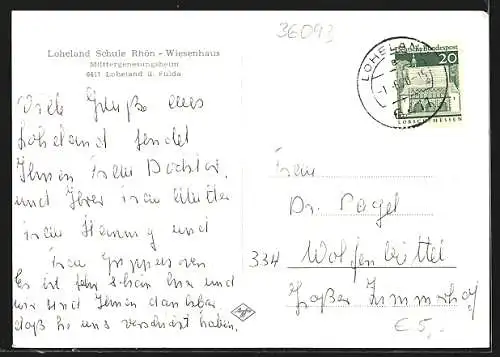 36093
Loheland Schule Rhön - Wiesenhaus
Müttergenesungsheim
6411 Loheland ü. Fulda
LOHELAND
Deutsche Bundespost
20
LORSCH/HESSEN
Viele Grüße aus
Loheland sendet
Ihnen Frau Doctor,
und Ihrer Frau Mutter
Frau Hennig und
Frau
Es ist sehr schön hier und
wir sind Ihnen dankbar
daß Sie uns verschickt haben.
Frau
Dr. Pagel
334 Wolfenbüttel
Großer Zimmerhof
€ 5,-